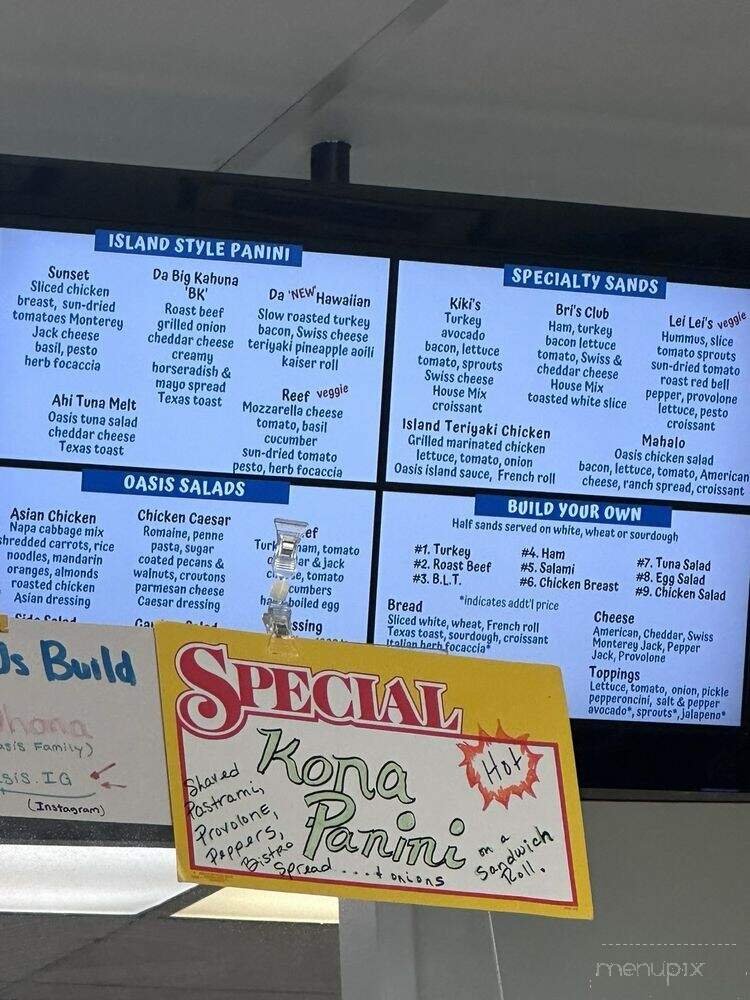 ISLAND STYLE PANINI
Sunset
Sliced chicken
breast, sun-dried
tomatoes Monterey
Jack cheese
basil, pesto
herb focaccia
Da Big Kahuna
'BK'
Roast beef
grilled onion
cheddar cheese
creamy
horseradish &
mayo spread
Texas toast
Da 'NEW' Hawaiian
Slow roasted turkey
bacon, Swiss cheese
teriyaki pineapple aoili
kaiser roll
Ahi Tuna Melt
Oasis tuna salad
cheddar cheese
Texas toast
Reef veggie
Mozzarella cheese
tomato, basil
cucumber
sun-dried tomato
pesto, herb focaccia
SPECIALTY SANDS
Kiki's
Turkey
avocado
bacon, lettuce
tomato, sprouts
Swiss cheese
House Mix
croissant
Bri's Club
Ham, turkey
bacon lettuce
tomato, Swiss &
cheddar cheese
House Mix
toasted white slice
Lei Lei's veggie
Hummus, slice
tomato sprouts
sun-dried tomato
roast red bell
pepper, provolone
lettuce, pesto
croissant
Island Teriyaki Chicken
Grilled marinated chicken
lettuce, tomato, onion
Oasis island sauce, French roll
Mahalo
Oasis chicken salad
bacon, lettuce, tomato, American
cheese, ranch spread, croissant
OASIS SALADS
Asian Chicken
Napa cabbage mix
shredded carrots, rice
noodles, mandarin
oranges, almonds
roasted chicken
Asian dressing
Chicken Caesar
Romaine, penne
pasta, sugar
coated pecans &
walnuts, croutons
parmesan cheese
Caesar dressing
ef
Tur ham, tomato
ar & jack
e, tomato
cumbers
ha boiled egg
ssing
Side Salad
BUILD YOUR OWN
Half sands served on white, wheat or sourdough
#1. Turkey
#2. Roast Beef
#3. B.L.T.
#4. Ham
#5. Salami
#6. Chicken Breast
#7. Tuna Salad
#8. Egg Salad
#9. Chicken Salad
*indicates addt'l price
Bread
Sliced white, wheat, French roll
Texas toast, sourdough, croissant
Italian herb focaccia*
Cheese
American, Cheddar, Swiss
Monterey Jack, Pepper
Jack, Provolone
Toppings
Lettuce, tomato, onion, pickle
pepperoncini, salt & pepper
avocado*, sprouts*, jalapeno*
Us Build
hana
asis Family)
sis.IG
(Instagram)
SPECIAL
Kona
Panini
Hot
Shaved
Pastrami,
Provolone,
Peppers,
Bistro
Spread....+ onions
on a
Sandwich
Roll.
menupix